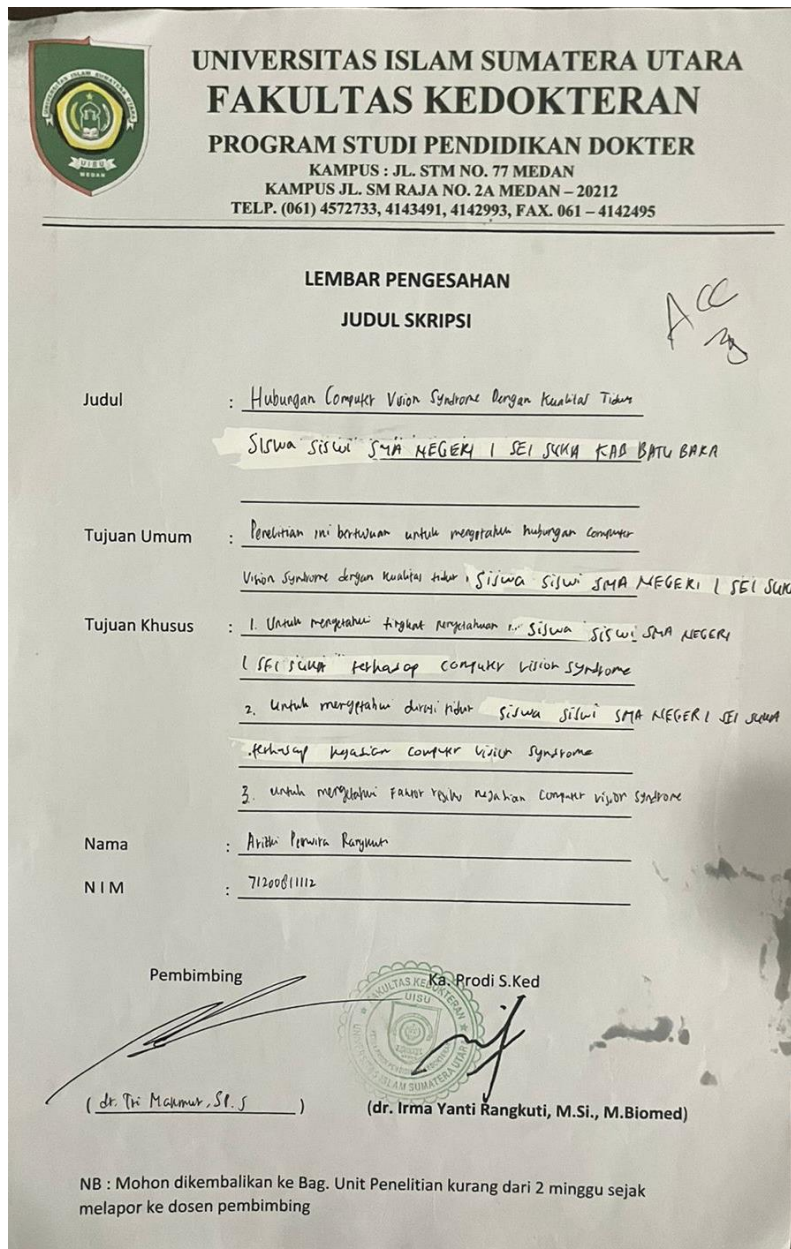 UNIVERSITAS ISLAM SUMATERA UTARA
FAKULTAS KEDOKTERAN
PROGRAM STUDI PENDIDIKAN DOKTER
KAMPUS : JL. STM NO. 77 MEDAN
KAMPUS JL. SM RAJA NO. 2A MEDAN – 20212
TELP. (061) 4572733, 4143491, 4142993, FAX. 061 – 4142495
UISU
MEDAN
LEMBAR PENGESAHAN
JUDUL SKRIPSI
ACC
Judul : Hubungan Computer Vision Syndrome Dengan Kualitas Tidur
Siswa Siswi SMA NEGERI 1 SEI SUKA KAB BATU BARA
Tujuan Umum : Penelitian ini bertujuan untuk mengetahui hubungan Computer
Vision Syndrome dengan kualitas tidur Siswa Siswi SMA NEGERI 1 SEI SUKA
Tujuan Khusus : 1. Untuk mengetahui tingkat pengetahuan Siswa Siswi SMA NEGERI
1 SEI SUKA terhadap computer vision syndrome
2. Untuk mengetahui durasi tidur Siswa Siswi SMA NEGERI 1 SEI SUKA
terhadap kejadian computer vision syndrome
3. untuk mengetahui faktor resiko kejadian computer vision syndrome
Nama : Perwira Rangkuti
NIM : 71200811112
Pembimbing Ka. Prodi S.Ked
FAKULTAS KEDOKTERAN
UISU
UNIVERSITAS ISLAM SUMATERA UTARA
(dr. Tri Makmur, Sp. S) (dr. Irma Yanti Rangkuti, M.Si., M.Biomed)
NB : Mohon dikembalikan ke Bag. Unit Penelitian kurang dari 2 minggu sejak
melapor ke dosen pembimbing